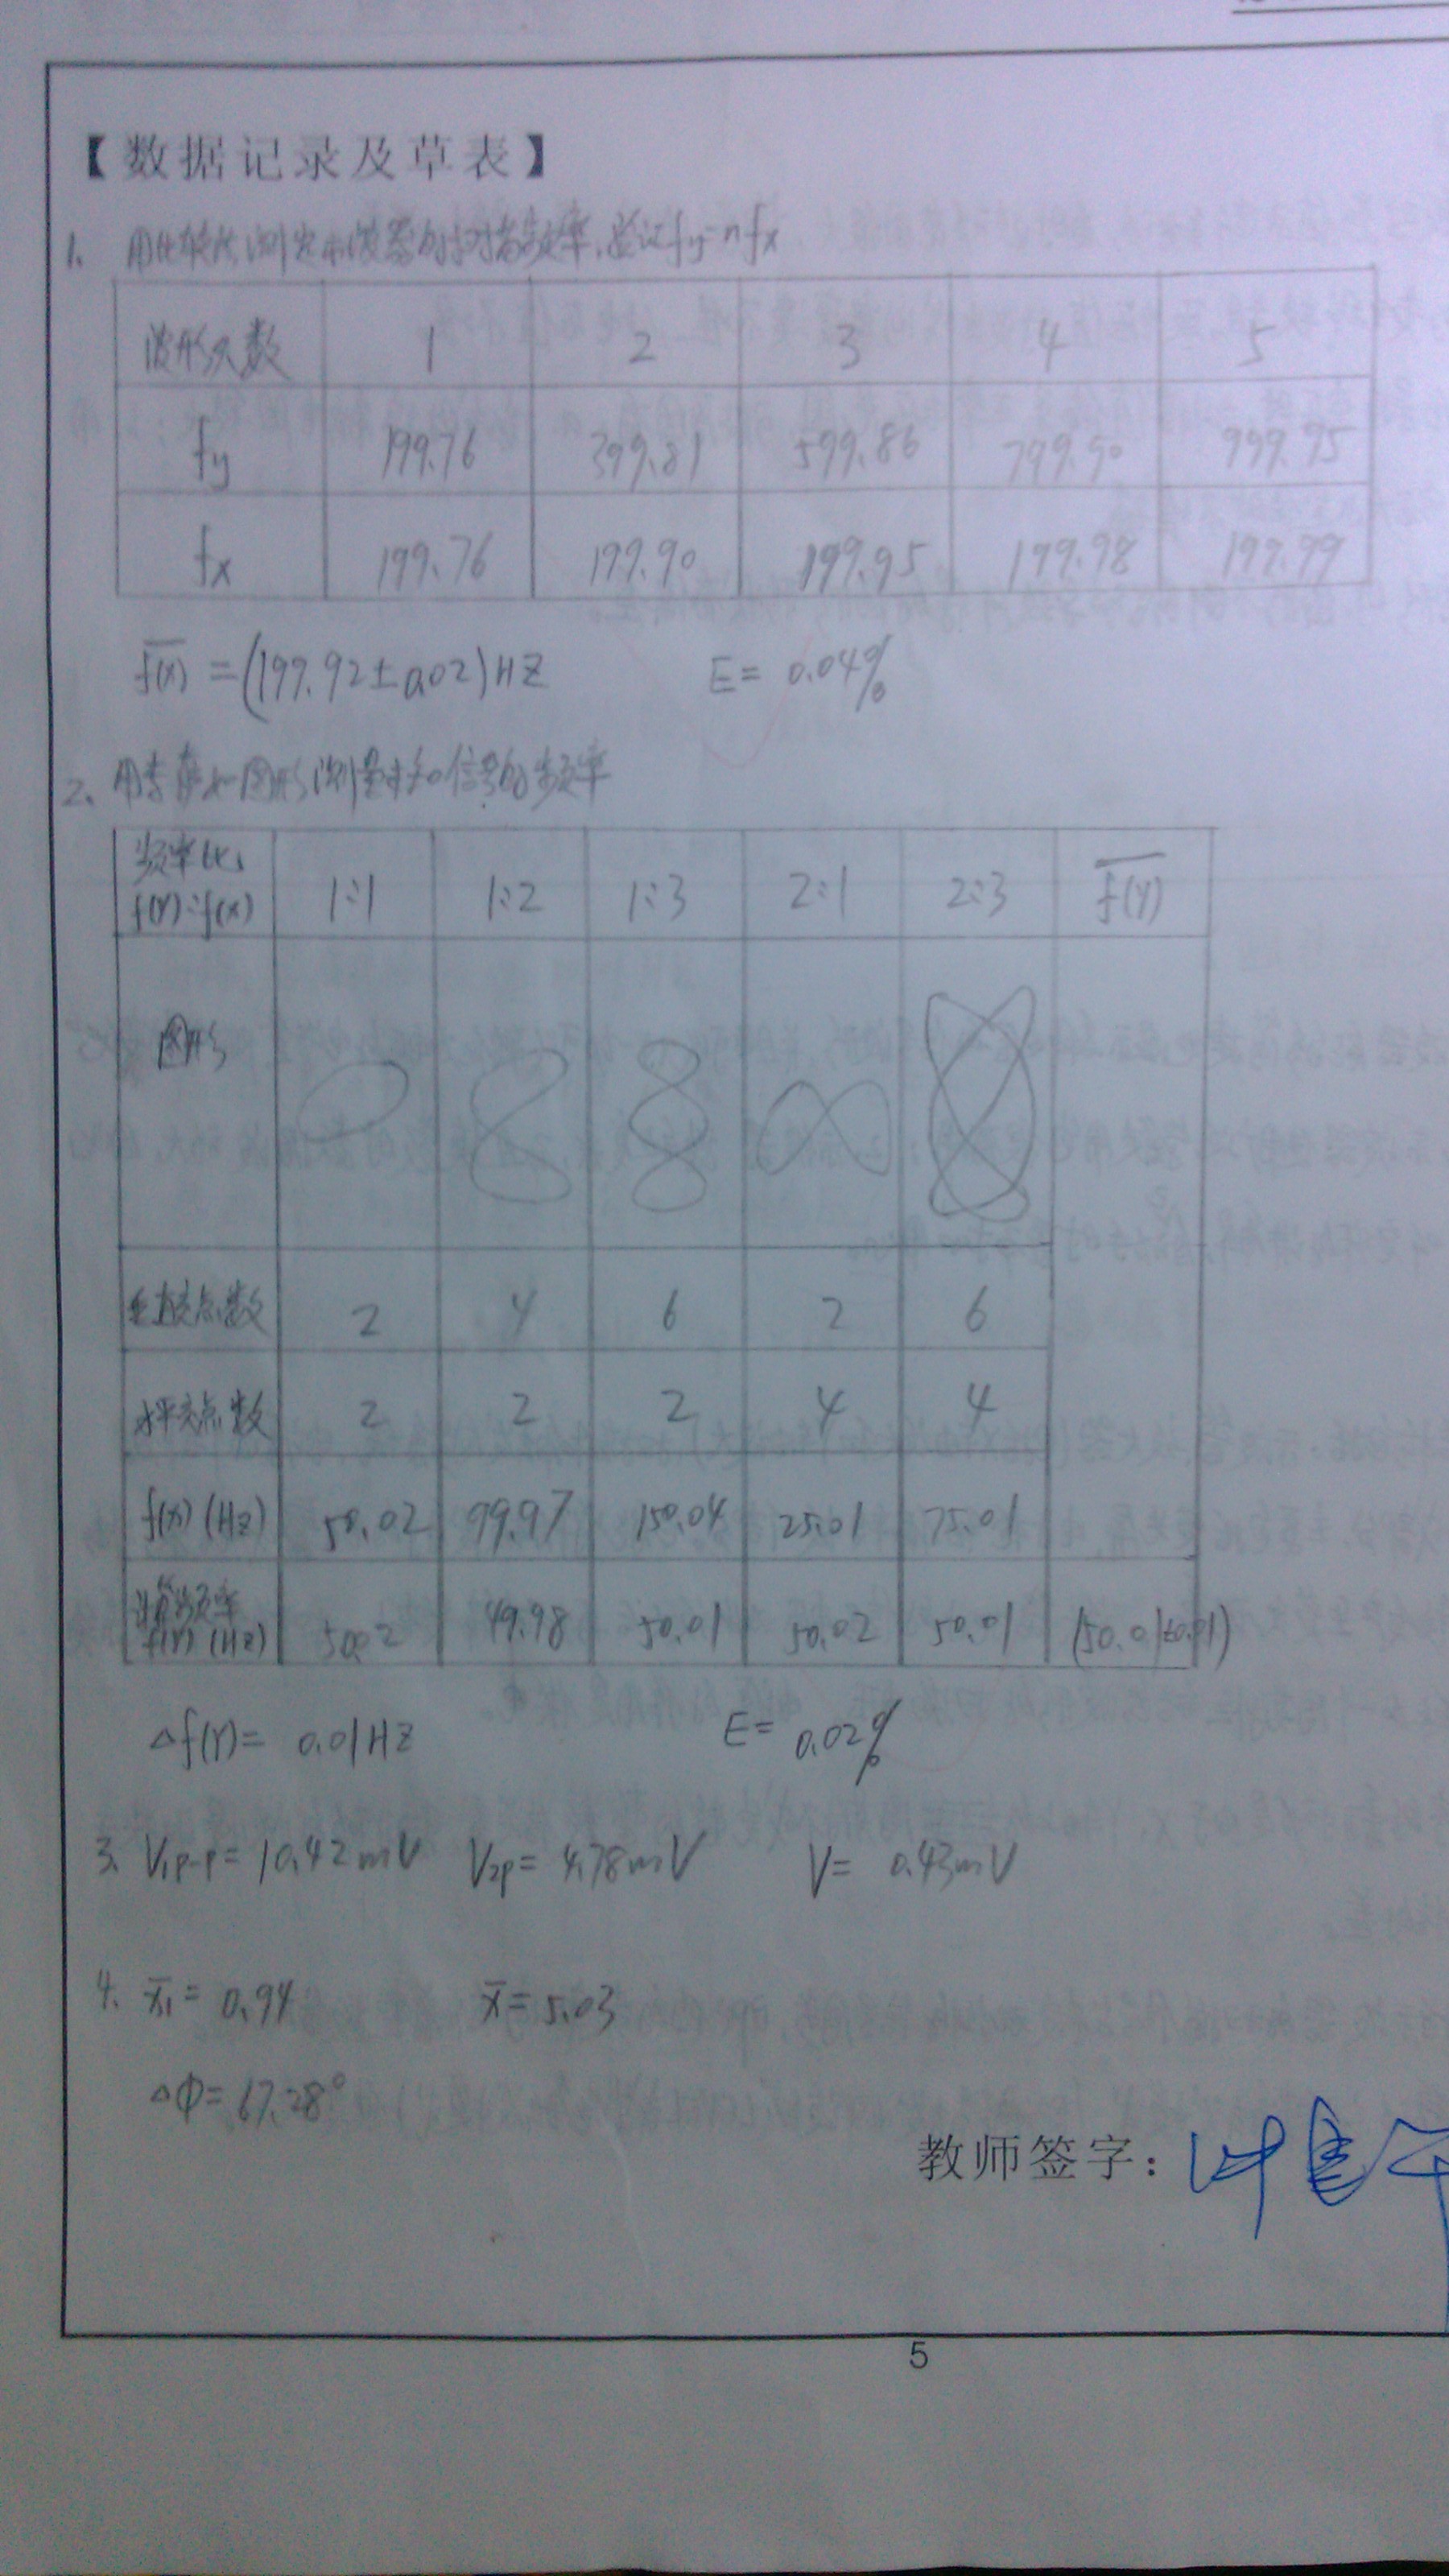 【数据记录及草表】
1. 用比较法测定示波器的扫描频率,验证fy=nfx
波形个数 1 2 3 4 5
fy 199.76 399.81 599.86 799.90 999.95
fx 199.76 199.90 199.95 199.98 199.99
f(x) = (199.92±0.02)HZ E= 0.04%
2. 用李萨如图形测量未知信号的频率
频率比
f(Y):f(X) 1:1 1:2 1:3 2:1 2:3 f(Y)
图形
垂直交点数 2 4 6 2 6
水平交点数 2 2 2 4 4
f(X) (Hz) 50.02 99.97 150.04 25.01 75.01
计算频率
f(Y) (Hz) 50.02 49.98 50.01 50.02 50.01 (50.01±0.01)
△f(Y)= 0.01HZ E= 0.02%
3. V1p-p= 10.42mV V2p= 4.78mV V= 0.43mV
4. x̄1= 0.94 x̄=5.03
△Φ=67.28°
教师签字:
5